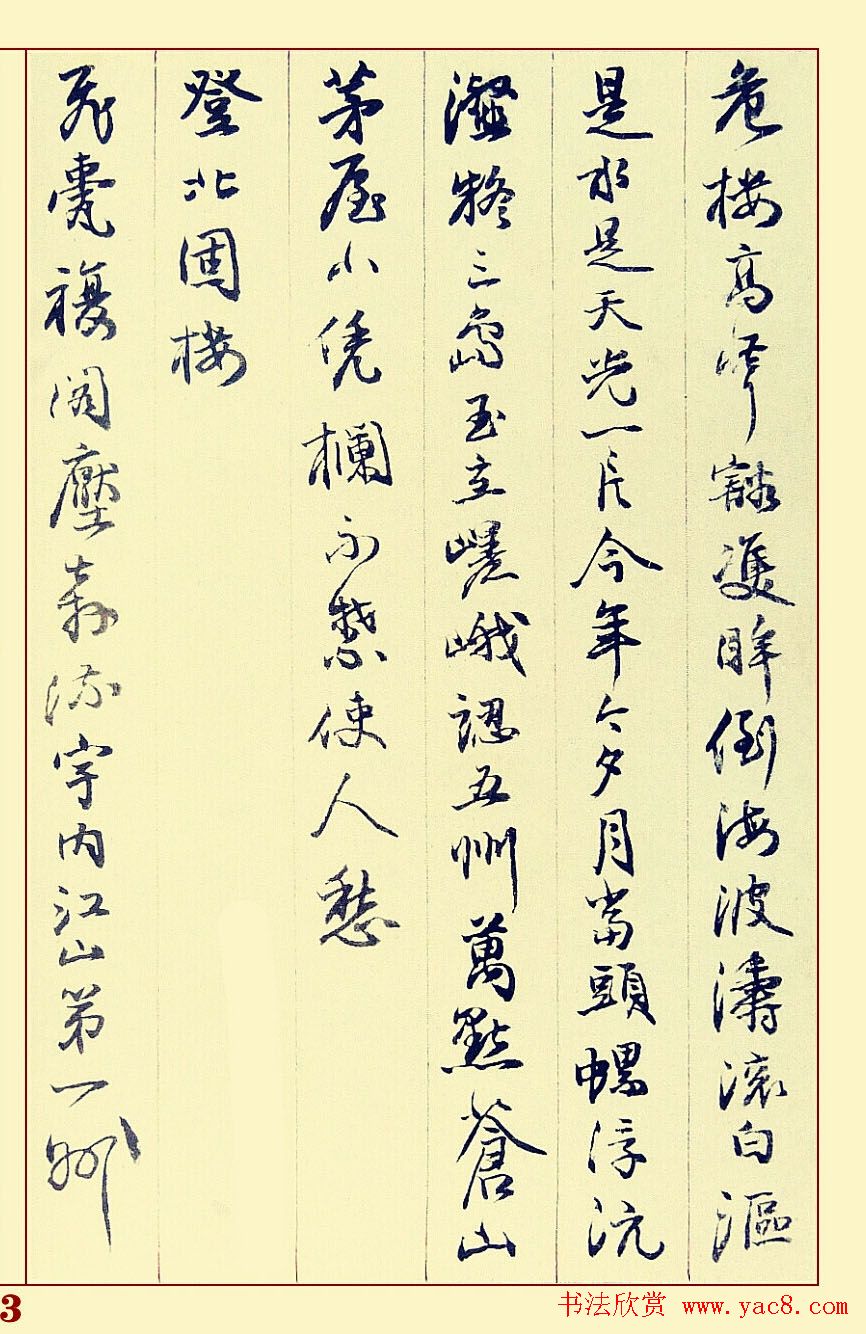 危樓高峰豁雙眸倒海波濤滚白漚
是水是天光一片今年今夕月當頭螺浮沆
瀣黟三島玉立嵯峨認五州萬點蒼山
茅屋小凭欄不禁使人愁
登北固樓
飛甍複阁壓奔流宇内江山第一州
3
书法欣赏 www.yac8.com